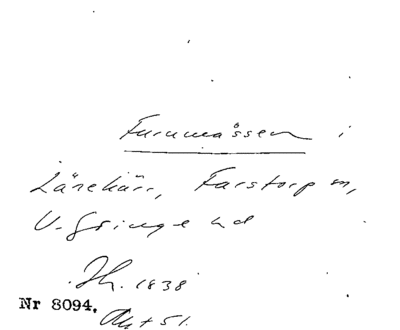 Furumossen i
Länekärr, Farstorp sn,
V. Göinge hd
Jh. 1838
Nr 8094.
Akt 51.